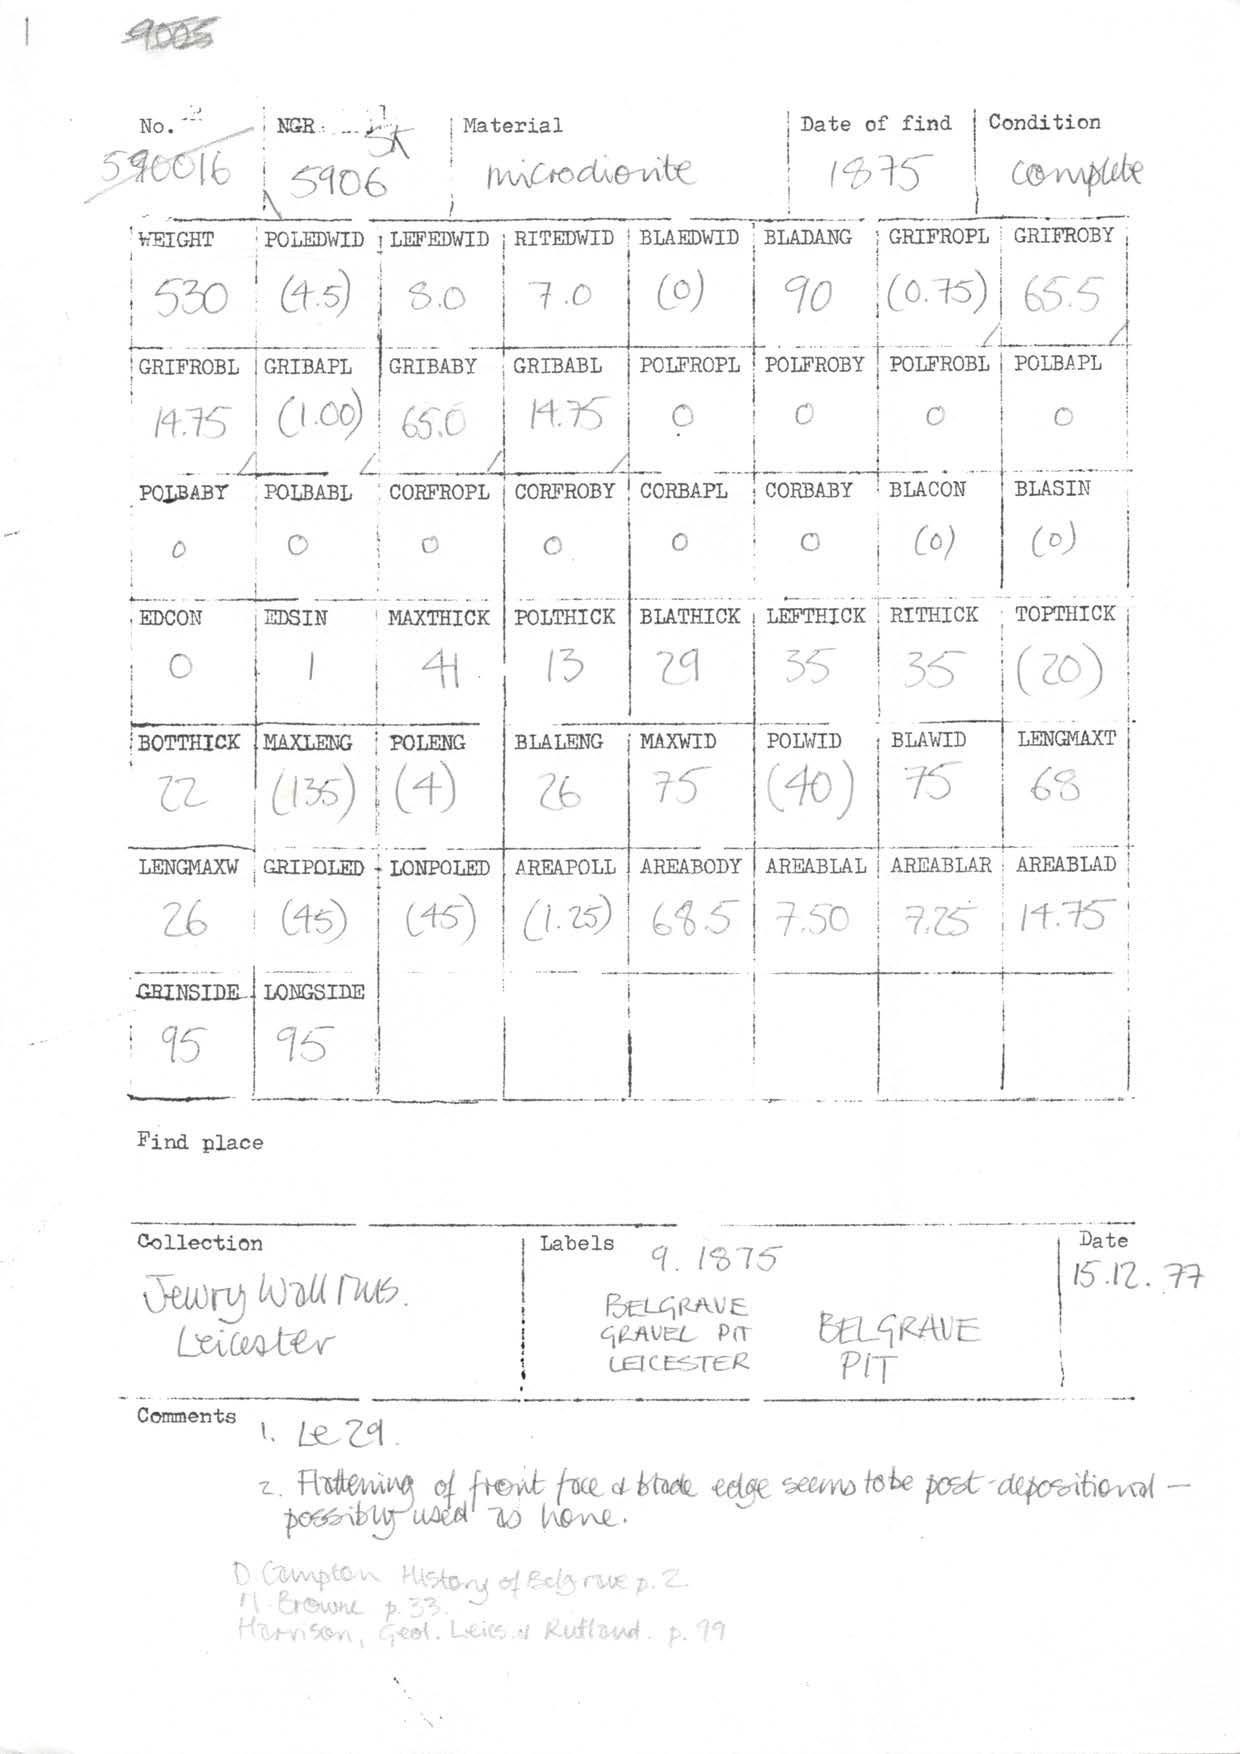 1 9005
No. NGR Material Date of find Condition
590016 SK 5906 microdiorite 1875 complete
WEIGHT POLEDWID LEFEDWID RITEDWID BLAEDWID BLADANG GRIFROPL GRIFROBY
530 (4.5) 8.0 7.0 (0) 90 (0.75) 65.5
GRIFROBL GRIBAPL GRIBABY GRIBABL POLFROPL POLFROBY POLFROBL POLBAPL
14.75 (1.00) 65.0 14.75 0 0 0 0
POLBABY POLBABL CORFROPL CORFROBY CORBAPL CORBABY BLACON BLASIN
0 0 0 0 0 0 (0) (0)
EDCON EDSIN MAXTHICK POLTHICK BLATHICK LEFTHICK RITHICK TOPTHICK
0 1 41 13 29 35 35 (20)
BOTTHICK MAXLENG POLENG BLALENG MAXWID POLWID BLAWID LENGMAXT
22 (135) (4) 26 75 (40) 75 68
LENGMAXW GRIPOLED LONPOLED AREAPOLL AREABODY AREABLAL AREABLAR AREABLAD
26 (45) (45) (1.25) 68.5 7.50 7.25 14.75
GRINSIDE LONGSIDE
95 95
Find place
Collection Labels 9. 1875 Date
Jewry Wall Mus. 15.12.77
Leicester
BELGRAVE
GRAVEL PIT
LEICESTER
BELGRAVE
PIT
Comments 1. Le 29.
2. Flattening of front face & blade edge seems to be post-depositional —
possibly used as hone.
D. Compton History of Belgrave p. 2.
M. Browne p. 33.
Harrison, Geol. Leics. & Rutland. p. 99